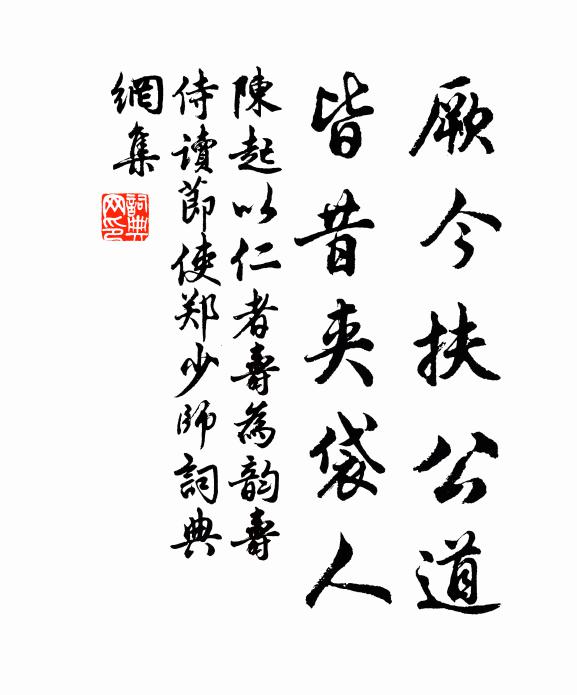 厥今扶公道
皆昔夾袋人
陳起以仁者壽為韵壽
侍讀節使郑少師詞典
網集
詞典
网印